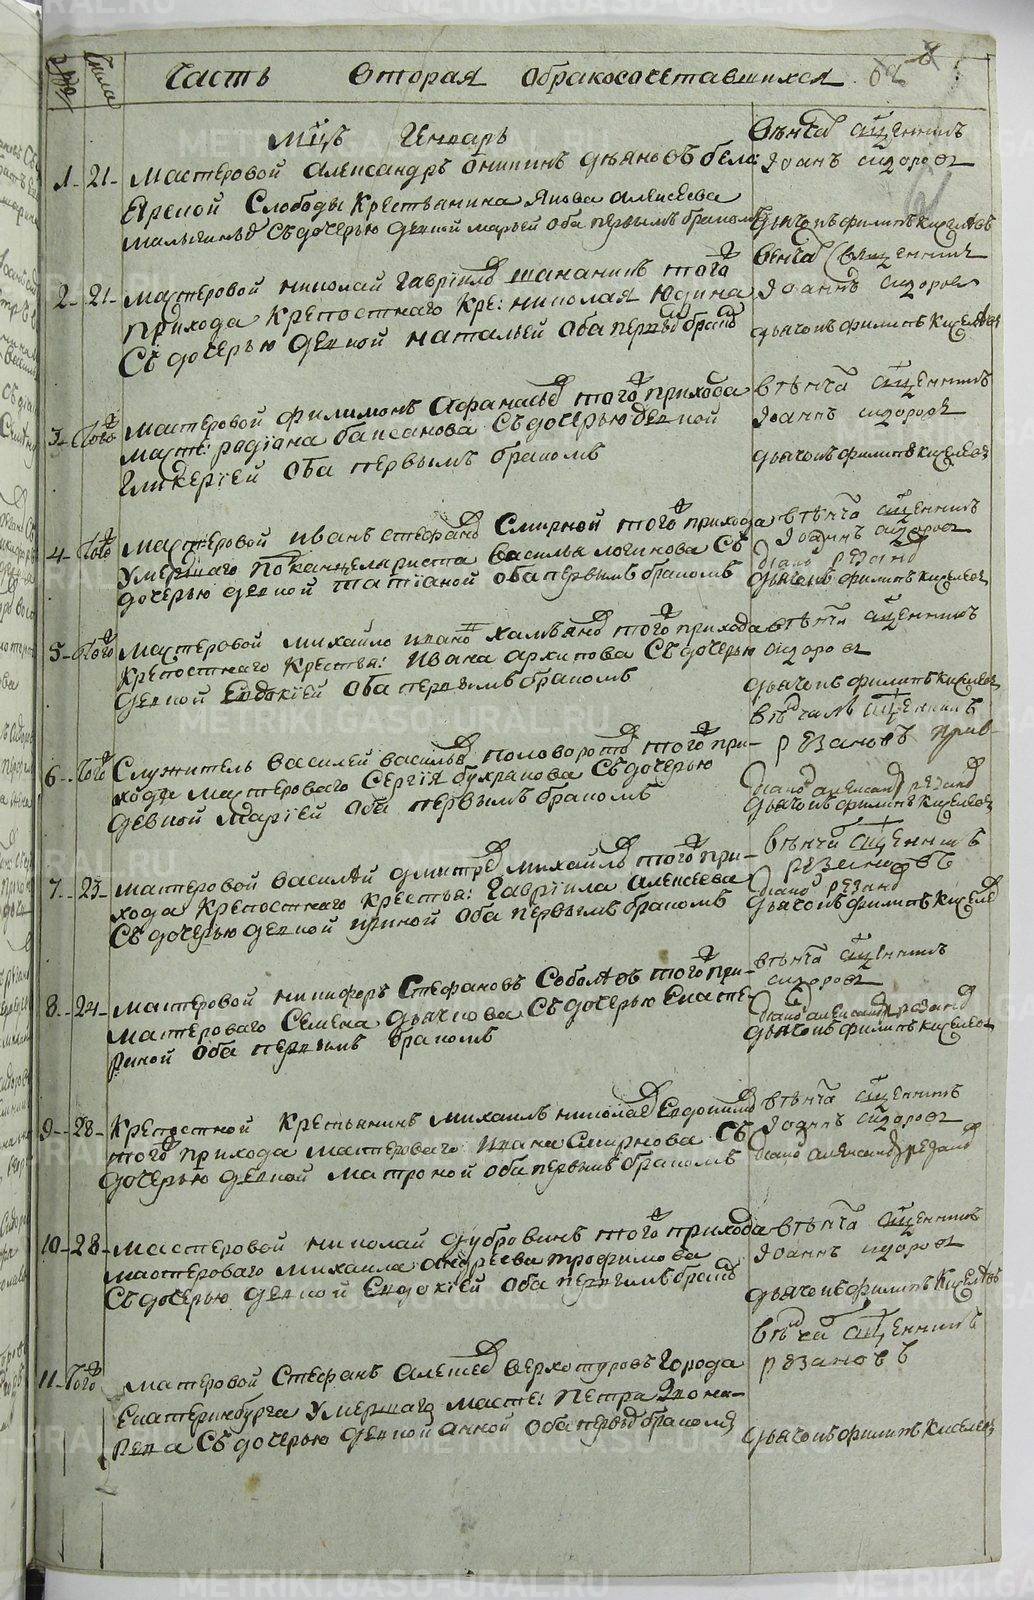 Часть Вторая Обракосочетавшихся
Числа
Мцъ Генварь
1 21 Мастеровой Александръ Онипинъ Бела
Ярской Слободы Крестьянина Якова Алексеева
Съ дочерью девкой Марьей оба первымъ бракомъ
Венча Сщенникъ
Иоанъ Сидоровъ
дьячокъ Филипъ Киселевъ
2 21 Мастеровой Николай Гаврiиловъ того
прихода Крепостнаго Кре: Николая Юдина
Съ дочерью девкой Натальей Оба первы браком
Венча Священникъ
Иоаннъ Сидоровъ
дьячокъ Филипъ Киселевъ
3 Того Мастеровой Филимонъ Афанасьев того прихода
Масте: Радiона Баксанова Съ дочерью девкой
Гликерiей Оба первымъ бракомъ
Вѣнча Сщенникъ
Иоаннъ Сидоровъ
дьячокъ Филипъ Киселевъ
4 Того Мастеровой Иванъ Стефанов Смирной того прихода
Умершаго Василья Логинова Съ
дочерью девкой Татiаной оба первымъ бракомъ
вѣнча Сщенникъ
Иоаннъ Сидоровъ
диако Резанов
дьячокъ Филипъ Киселевъ
5 Того Мастеровой Михайло Иванов того прихода
Крепостнаго Крестья: Ивана Архипова Съ дочерью
девкой Евдокiей Оба первымъ бракомъ
вѣнча Сщенникъ
Сидоровъ
дьячокъ Филипъ Киселевъ
6 Того Служитель Василей Васильев Половоротов того при-
хода Мастероваго Сергiя Бухрякова Съ дочерью
девкой Марiей Оба первымъ бракомъ
вѣнчалъ Сщенникъ
Резановъ
диако Александр Резанов
дьячокъ Филипъ Киселевъ
7 23 Мастеровой Василѣй Дмитре Михайлов того при-
хода Крепостнаго Крестья: Гаврiила Алексеева
Съ дочерью девкой Ириной Оба первымъ бракомъ
вѣнча Сщенникъ
Резановъ
диако Резанов
дьячокъ Филипъ Киселев
8 24 Мастеровой Никифоръ Стефановъ Соболѣвъ того при-
Мастероваго Семена Дьячкова Съ дочерью Екате-
риной Оба первымъ бракомъ
вѣнча Сщенникъ
Сидоровъ
диако Александр Резанов
дьячокъ Филипъ Киселевъ
9 28 Крепостной Крестьянинъ Михаилъ Николаев Евдокимов
того прихода мастероваго Ивана Смирнова Съ
дочерью девкой Матроной оба первымъ бракомъ
вѣнча Сщенникъ
Иоаннъ Сидоровъ
диако Александр Резанов
10 28 Мастеровой Николай Дубровинъ того прихода
мастероваго Михаила Андреева Трофимова
Съ дочерью девкой Евдокiей Оба первымъ браком
вѣнча Сщенникъ
Иоаннъ Сидоровъ
дьячокъ Филипъ Киселѣвъ
11 Того Мастеровой Стефанъ Алексеев Верхотуровъ Города
Екатеринбурга Умершаго Масте: Петра
Съ дочерью девкой Анной Оба первы бракомъ
вѣнча Сщенникъ
Резановъ
дьячокъ Филипъ Киселевъ
METRIKI.GASO-URAL.RU